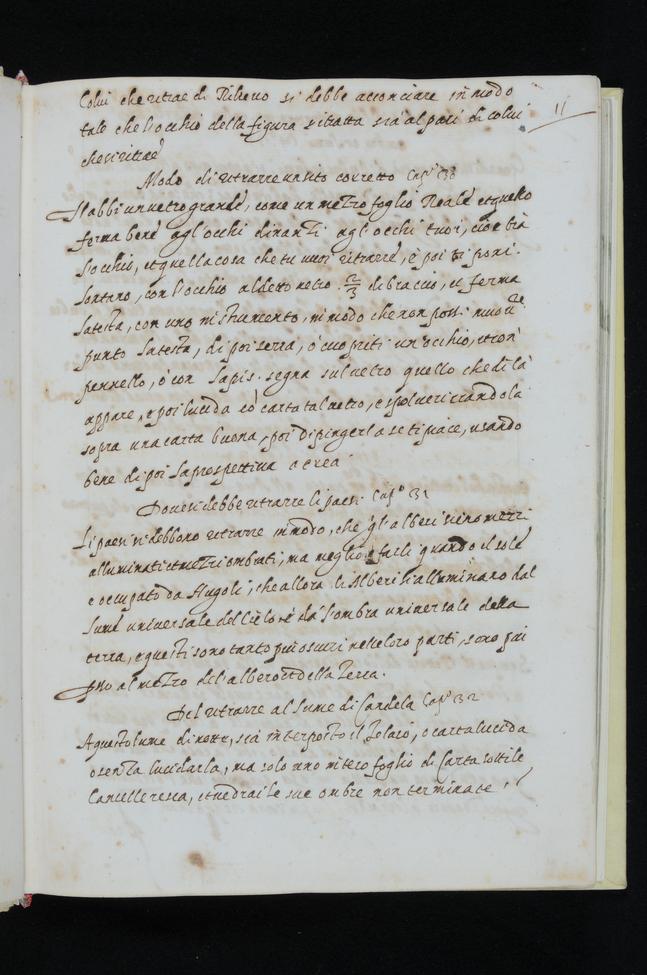 11
Colui che ritrae di Rilievo si debbe acconciare in modo
tale che l'occhio della figura ritratta sia al pari di colui
che ritrae
Modo di ritrarre un sito corretto Cap.º 30
Habbi un vetro grande, come un mezzo foglio Reale et quello
ferma bene agl'occhi dinanzi agl'occhi tuoi, cioè tra
l'occhio, et quella cosa che tu vuoi ritrarre, e poi ti poni
lontano, con l'occhio al detto vetro 2/3 di braccio, et ferma
la testa, con uno instrumento, in modo che non possi muover
punto la testa, di poi serra, o cuopriti un'occhio, et con
pennello, o con lapis segna sul vetro quello che di là
appare, e poi lucida cõ carta tal vetro, e spolverizzandola
sopra una carta buona, poi dipingerla se ti piace, usando
bene di poi la prospettiva aerea
Dove si debbe ritrarre li paesi Cap.º 31
Li paesi si debbono ritrarre in modo, che gl'alberi sieno mezzi
alluminati et mezzi ombrati, ma meglio è farli quando il sole
è occupato da Nugoli, che allora li Alberi si alluminano dal
lume universale del Cielo et da l'ombra universale della
terra, e questi sono tanto più oscuri nelle loro parti,
al mezzo del'albero et della Terra.
Del ritrarre al lume di Candela Cap.º 32
A questo lume di notte, sia interposto il Telaio, o carta lucida
o senza lucidarla, ma solo uno intero foglio di Carta sottile
Cancelleresca, et vedrai le sue ombre non terminate